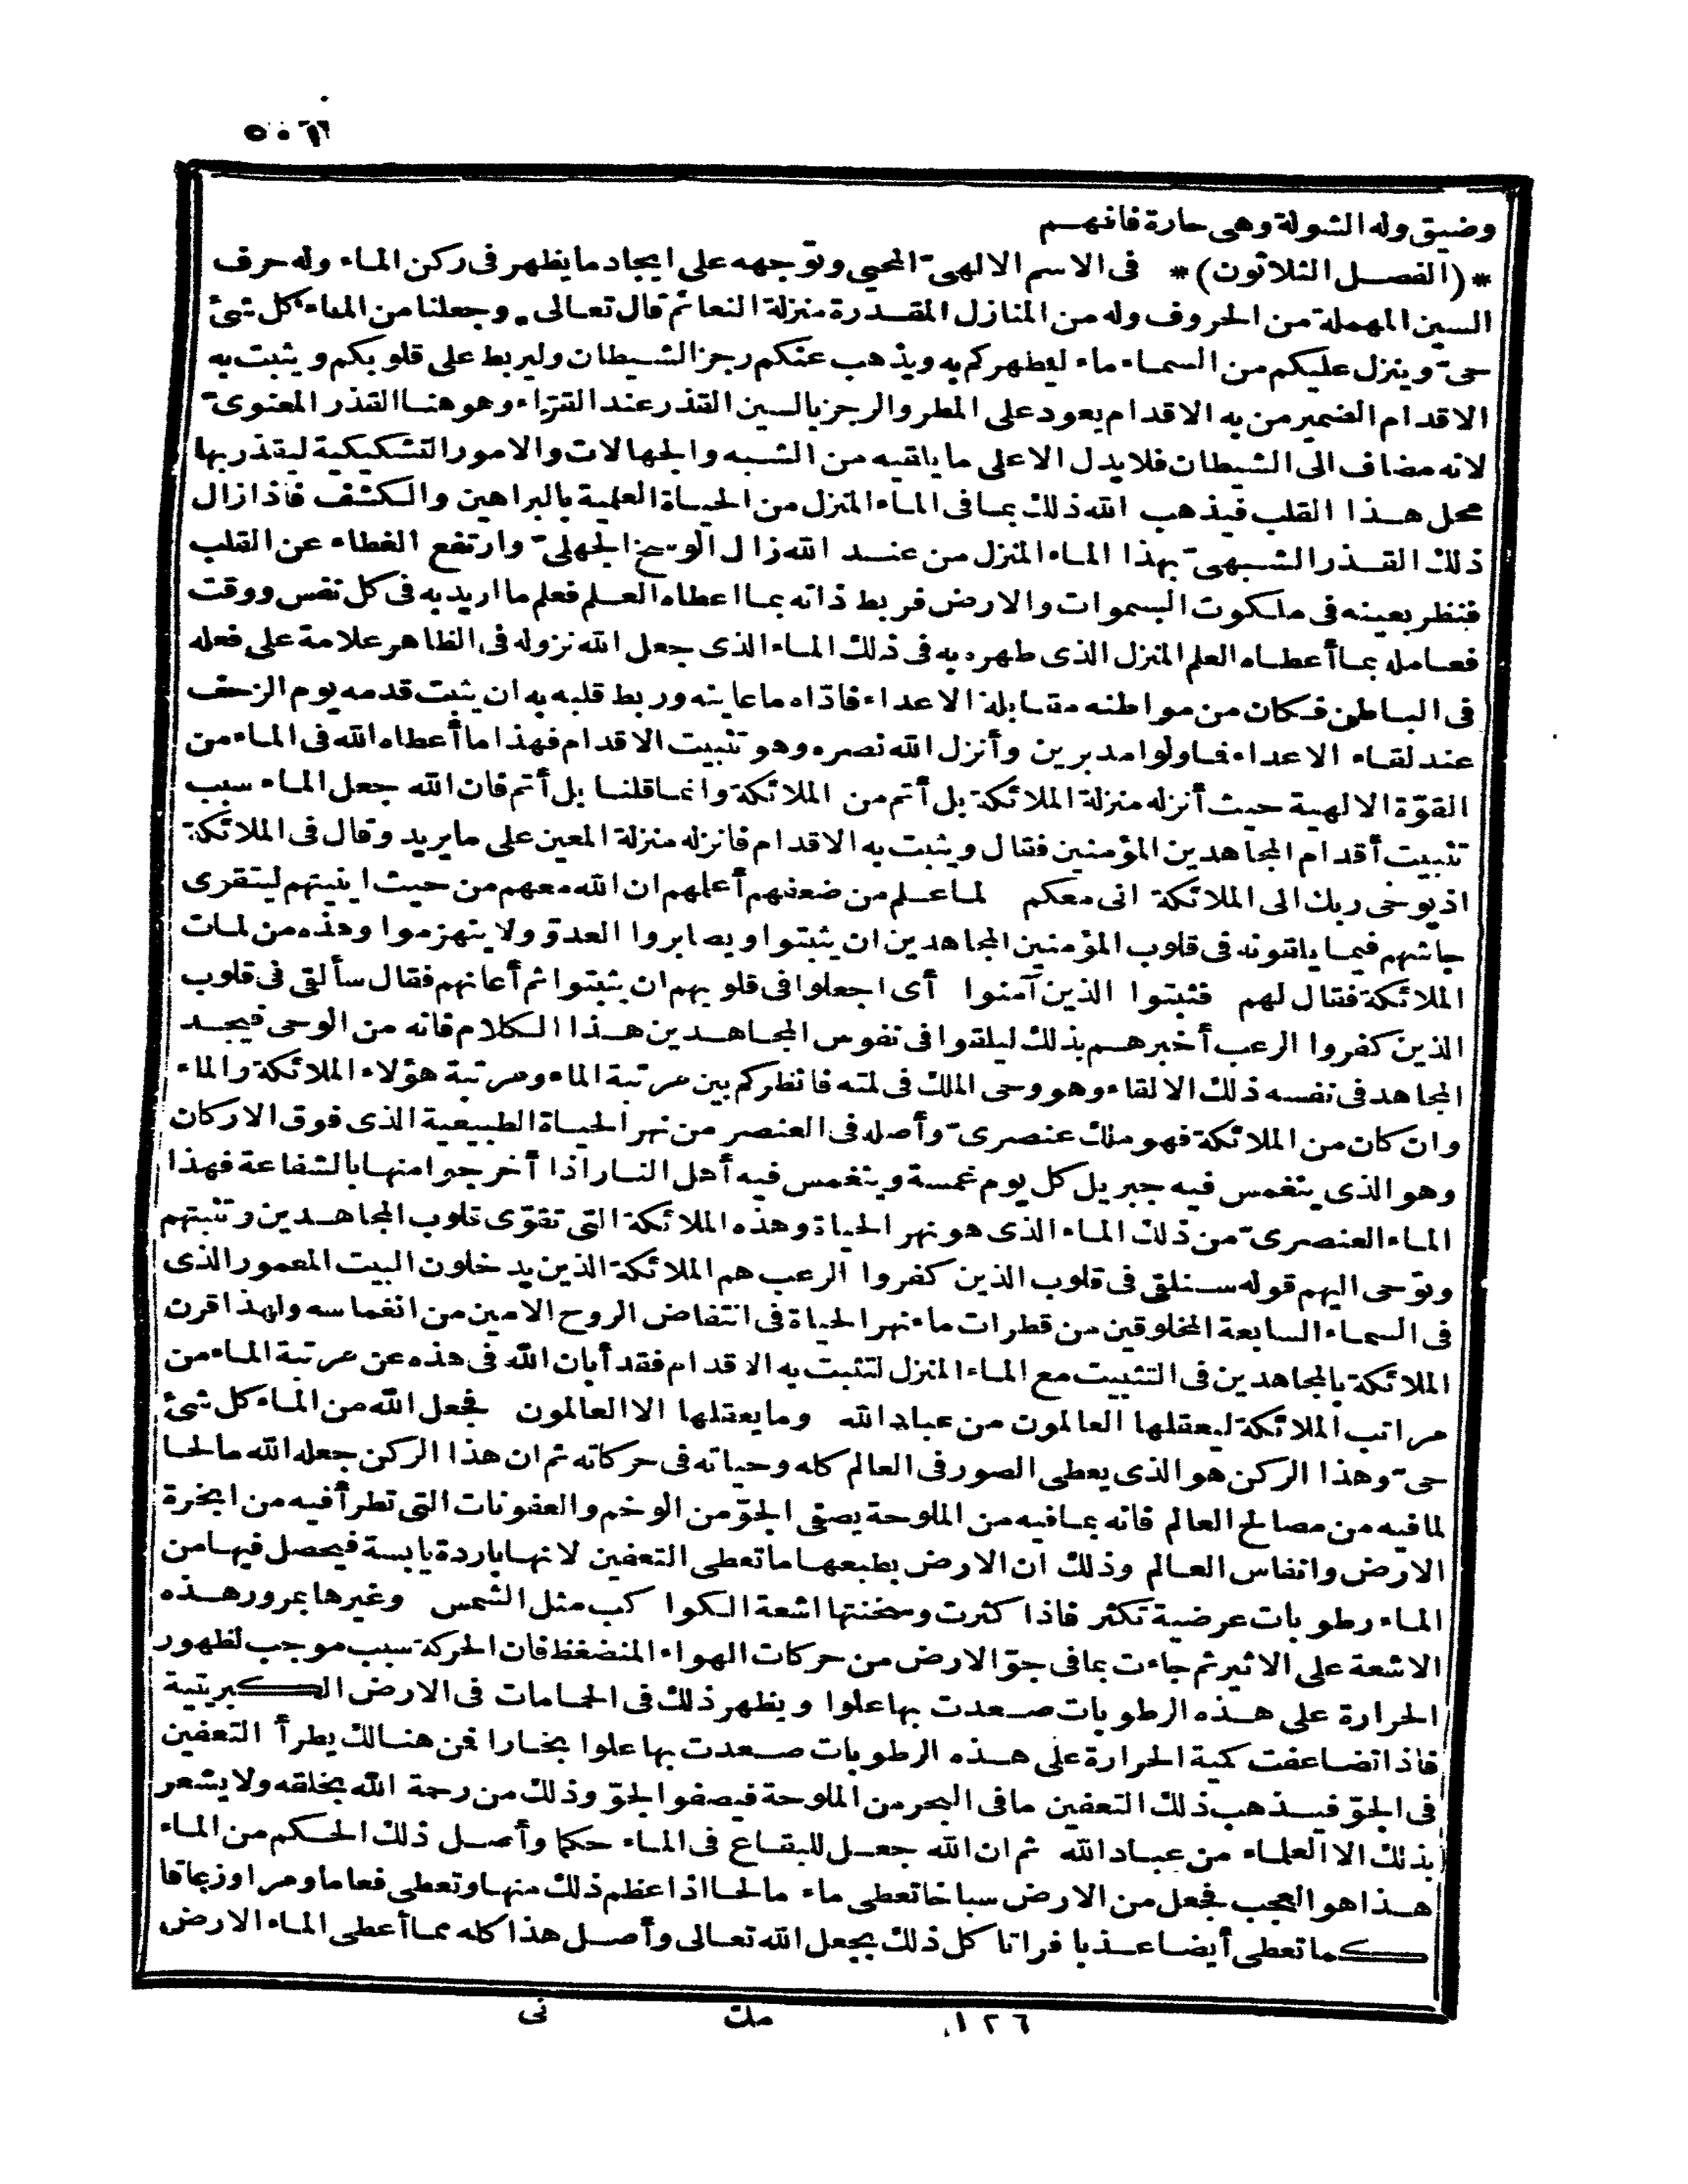 ٥٠٦
وضيق وله الشولة وهى حارة فافهم
*(الفصل الثلاثون)* فى الاسم الالهىّ المحيى وتوّجهه على ايجاد ما يظهر فى ركن الماء وله حرف
السين المهملة من الحروف وله من المنازل المقدرة منزلة النعائم قال تعالى وجعلنا من الماء كل شئ
حىّ وينزل عليكم من السماء ماء ليطهركم به ويذهب عنكم رجز الشيطان وليربط على قلوبكم ويثبت به
الاقدام الضمير من به الاقدام يعود على المطر والرجز بالسين القذر عند القرّاء وهو هنا القذر المعنوىّ
لانه مضاف الى الشيطان فلا يدل الا على ما يلقيه من الشبه والجهالات والامور التشكيكية ليقذر بها
محل هذا القلب فيذهب الله ذلك بما فى الماء المنزل من الحياة العلمية بالبراهين والكشف فاذا زال
ذلك القذر الشبهىّ بهذا الماء المنزل من عند الله زال الوسخ الجهلىّ وارتفع الغطاء عن القلب
فنظر بعينه فى ملكوت السموات والارض فربط ذاته بما اعطاه العلم فعلم ما اريد به فى كل نفس ووقت
فعامله بما أعطاه العلم المنزل الذى طهره به فى ذلك الماء الذى جعل الله نزوله فى الظاهر علامة على فعله
فى الباطن فكان من مواطنه مقابلة الاعداء فادّاه ما عاينه وربط قلبه به ان يثبت قدمه يوم الزحف
عند لقاء الاعداء فما ولوا مدبرين وأنزل الله نصره وهو تثبيت الاقدام فهذا ما أعطاه الله فى الماء من
القوّة الالهية حيث أنزله منزلة الملائكة بل أتم من الملائكة وانما قلنا بل أتم فان الله جعل الماء سبب
تثبيت أقدام المجاهدين المؤمنين فقال ويثبت به الاقدام فانزله منزلة المعين على ما يريد وقال فى الملائكة
اذ يوحى ربك الى الملائكة انى معكم لما علم من ضعفهم أعلمهم ان الله معهم من حيث اينيتهم ليتقوى
جاشهم فيما يلقونه فى قلوب المؤمنين المجاهدين ان يثبتوا ويصابروا العدوّ ولا ينهزموا وهذه من لمات
الملائكة فقال لهم فثبتوا الذين آمنوا أى اجعلوا فى قلوبهم ان يثبتوا ثم أعانهم فقال سألقى فى قلوب
الذين كفروا الرعب أخبرهم بذلك ليلقوا فى نفوس المجاهدين هذا الكلام فانه من الوحى فيجد
المجاهد فى نفسه ذلك الالقاء وهو وحى الملك فى لمته فانظركم بين مرتبة الماء ومرتبة هؤلاء الملائكة والماء
وان كان من الملائكة فهو ملك عنصرىّ وأصله فى العنصر من نهر الحياة الطبيعية الذى فوق الاركان
وهو الذى ينغمس فيه جبريل كل يوم غمسة وينغمس فيه أهل النار اذا أخرجوا منها بالشفاعة فهذا
الماء العنصرىّ من ذلك الماء الذى هو نهر الحياة وهذه الملائكة التى تقوّى قلوب المجاهدين وتثبتهم
وتوحى اليهم قوله سنلقى فى قلوب الذين كفروا الرعب هم الملائكة الذين يدخلون البيت المعمور الذى
فى السماء السابعة المخلوقين من قطرات ماء نهر الحياة فى انتفاض الروح الامين من انغماسه ولهذا قرن
الملائكة بالمجاهدين فى التثبيت مع الماء المنزل لتثبت به الاقدام فقد أبان الله فى هذه عن مرتبة الماء من
مراتب الملائكة ليعقلها العالمون من عباد الله وما يعقلها الا العالمون فجعل الله من الماء كل شئ
حىّ وهذا الركن هو الذى يعطى الصور فى العالم كله وحياته فى حركاته ثم ان هذا الركن جعله الله مالحا
لما فيه من مصالح العالم فانه بما فيه من الملوحة يصفى الجوّ من الوخم والعفونات التى تطرأ فيه من ابخرة
الارض وانفاس العالم وذلك ان الارض بطبعها ما تعطى التعفين لانها باردة يابسة فيحصل فيها من
الماء رطوبات عرضية تكثر فاذا كثرت وسخنتها اشعة الكواكب مثل الشمس وغيرها بمرور هذه
الاشعة على الاثير ثم جاءت بما فى جوّ الارض من حركات الهواء المنضغظ فان الحركة سبب موجب لظهور
الحرارة على هذه الرطوبات صعدت بها علوا ويظهر ذلك فى الحمامات فى الارض الكبريتية
فاذا تضاعفت كمية الحرارة على هذه الرطوبات صعدت بها علوا بخارا فمن هنالك يطرأ التعفين
فى الجوّ فيذهب ذلك التعفين ما فى البحر من الملوحة فيصفو الجوّ وذلك من رحمة الله بخلقه ولا يشعر
بذلك الا العلماء من عباد الله ثم ان الله جعل للبقاع فى الماء حكما وأصل ذلك الحكم من الماء
هذا هو العجب فجعل من الارض سباخا تعطى ماء مالحا اذا عظم ذلك منها وتعطى فعاما ومرا وزعاقا
كما تعطى أيضا عذبا فراتا كل ذلك بجعل الله تعالى وأصل هذا كله مما أعطى الماء الارض
١٢٦ مك نى